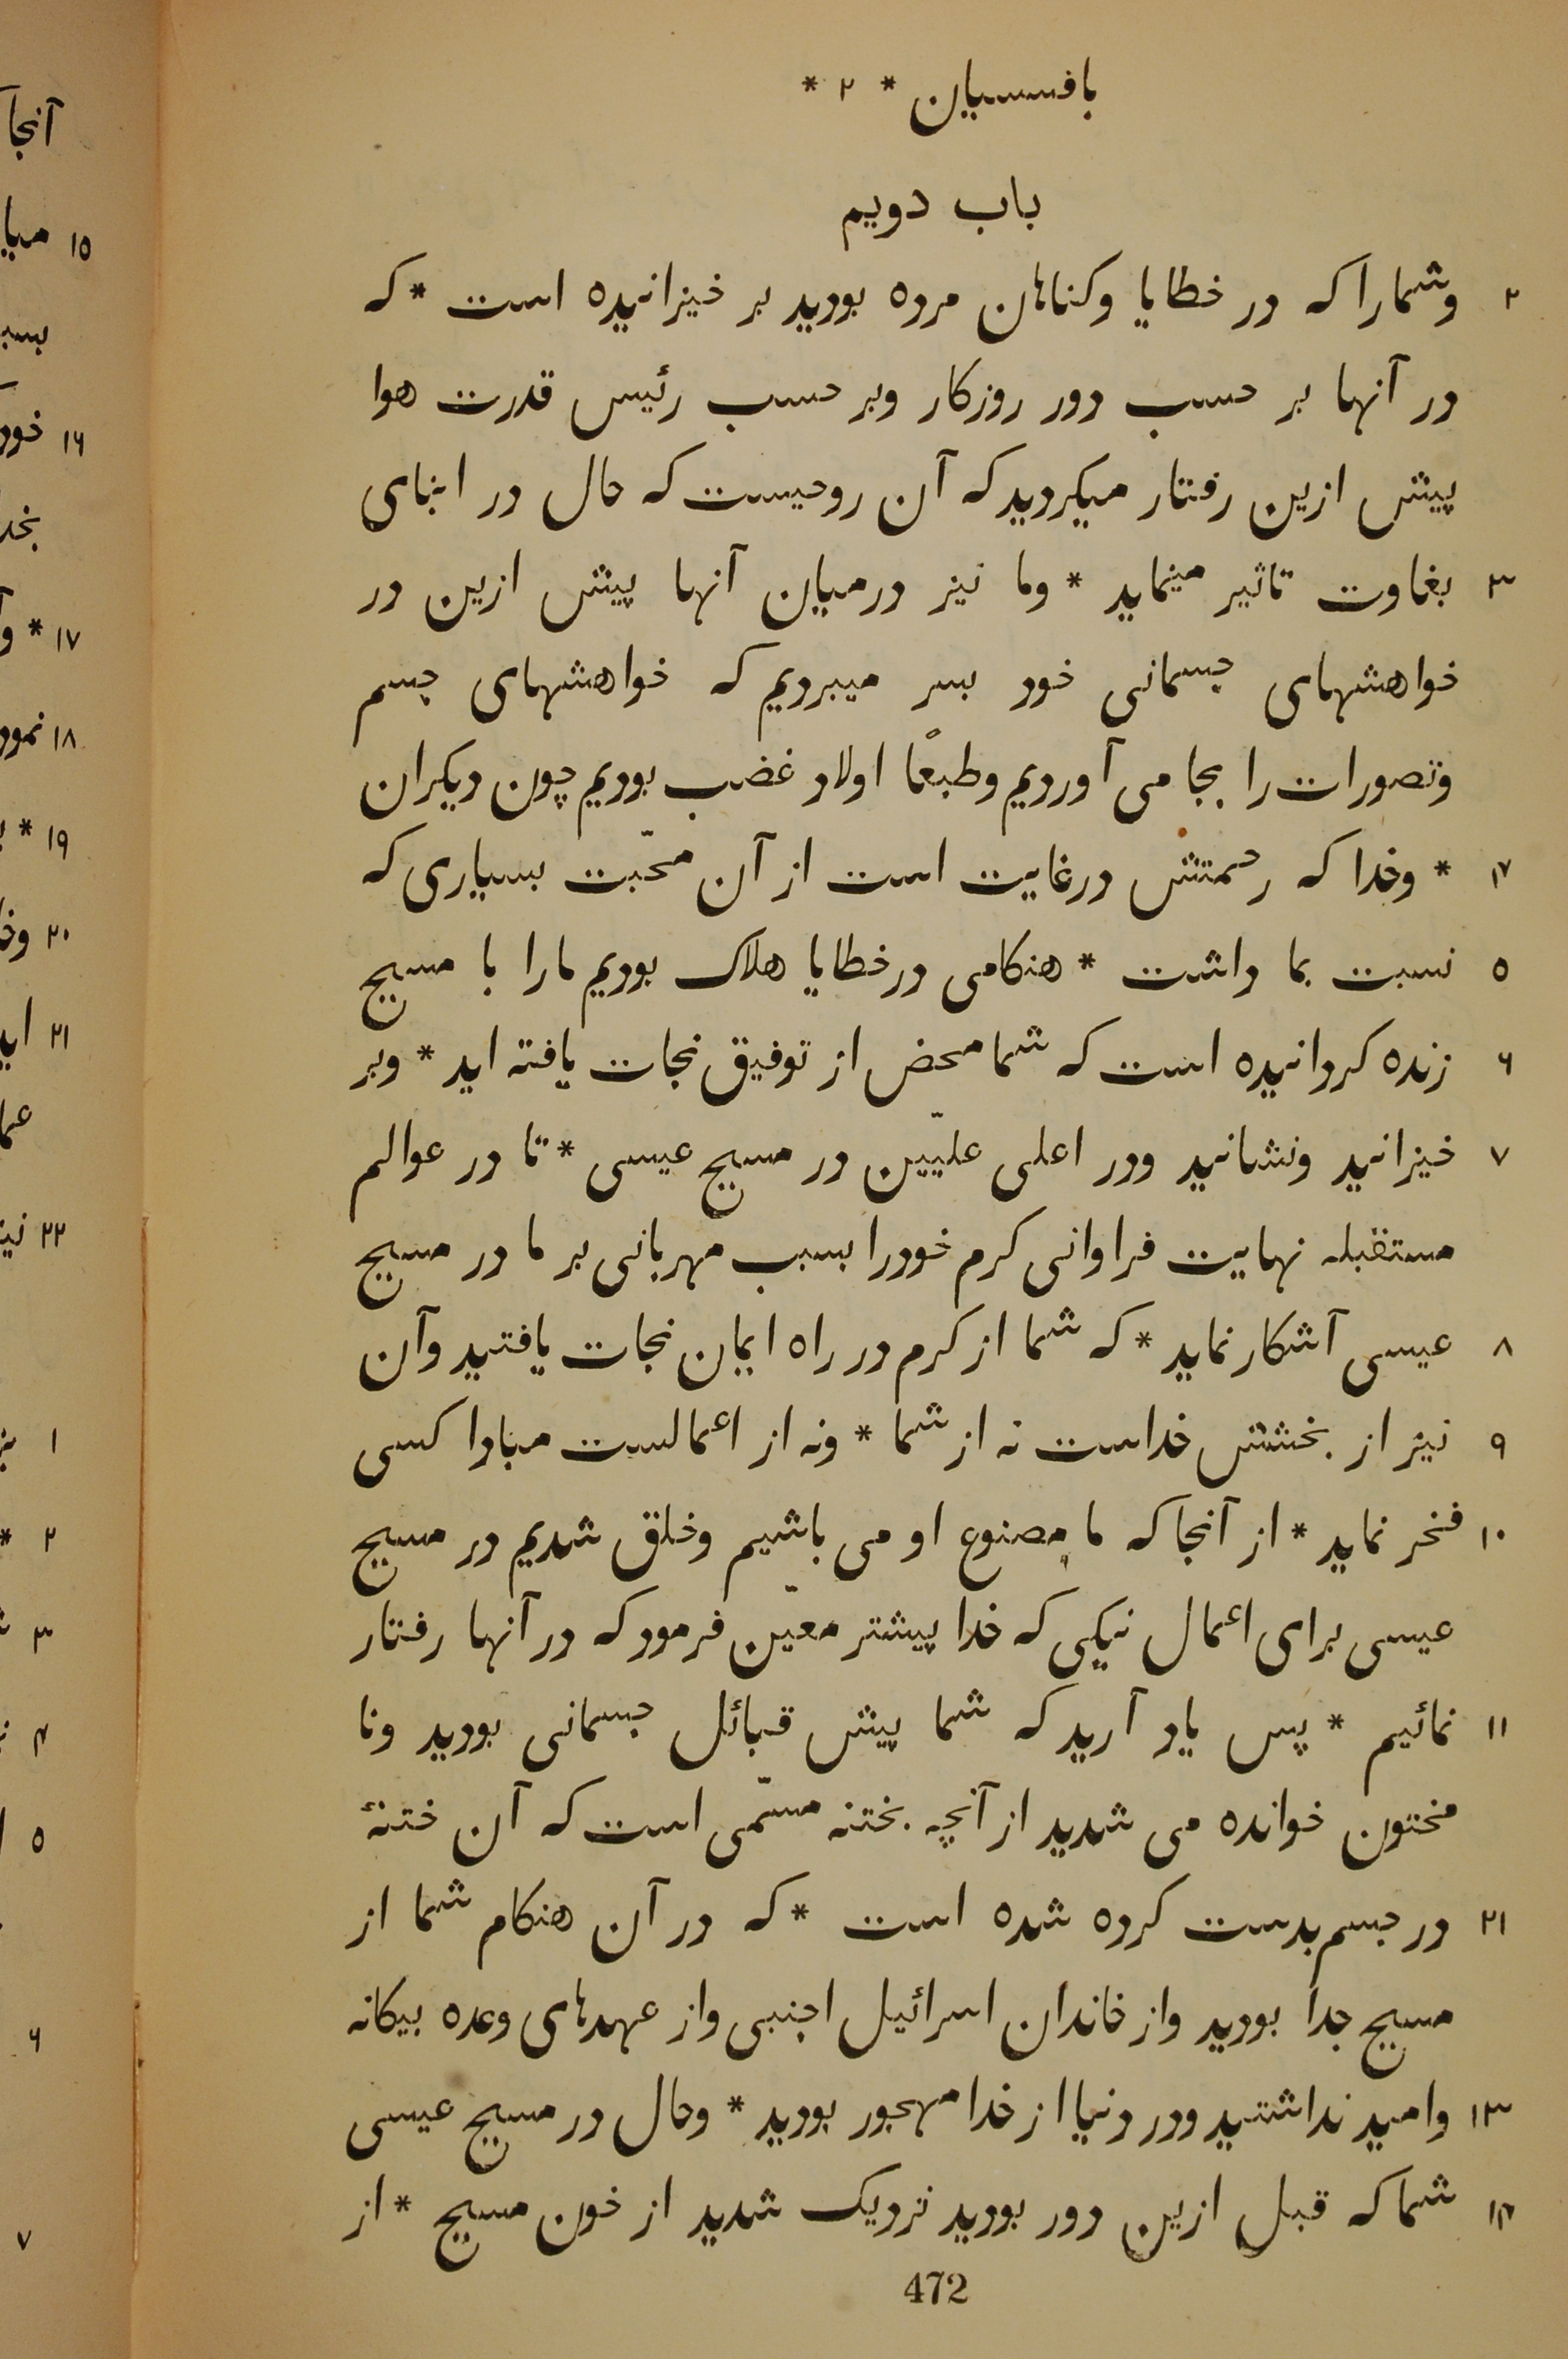 بافسسیان * ۲ *
باب دویم
۲ وشمارا که در خطایا وکناهان مرده بودید بر خیزانیده است * که
در آنها بر حسب دور روزکار وبر حسب رئیس قدرت هوا
پیش ازین رفتار میکردید که آن روحیست که حال در ابنای
۳ بغاوت تاثیر مینماید * وما نیز درمیان آنها پیش ازین در
خواهشهای جسمانی خود بسر میبردیم که خواهشهای جسم
وتصورات را بجا می آوردیم وطبعًا اولاد غضب بودیم چون دیکران
۴ * وخدا که رحمتش درغایت است از آن محبّت بسیاری که
۵ نسبت بما داشت * هنکامی درخطایا هلاک بودیم مارا با مسیح
۶ زنده کردانیده است که شما محض از توفیق نجات یافته اید * وبر
۷ خیزانید ونشانید ودر اعلی علیّین در مسیح عیسی * تا در عوالم
مستقبله نهایت فراوانی کرم خودرا بسبب مهربانی بر ما در مسیح
۸ عیسی آشکار نماید * که شما از کرم در راه ایمان نجات یافتید وآن
۹ نیز از بخشش خداست نه از شما * ونه از اعمالست مبادا کسی
۱۰ فخر نماید * از آنجا که ما مصنوع او می باشیم وخلق شدیم در مسیح
عیسی برای اعمال نیکی که خدا پیشتر معیّن فرمود که در آنها رفتار
۱۱ نمائیم * پس یاد آرید که شما پیش قبائل جسمانی بودید ونا
مختون خوانده می شدید از آنچه بختنه مسمّی است که آن ختنهٔ
۲۱ در جسم بدست کرده شده است * که در آن هنکام شما از
مسیح جدا بودید واز خاندان اسرائیل اجنبی واز عهدهای وعده بیکانه
۱۳ وامید نداشتید ودر دنیا از خدا مهجور بودید * وحال در مسیح عیسی
۱۴ شما که قبل ازین دور بودید نزدیک شدید از خون مسیح * از
472
آنجا
۱۵ میا
بسب
۱۶ خود
بخد
۱۷ * و
۱۸ نمود
۱۹ *
۲۰ وخ
۲۱ اید
عما
۲۲ نیز
۱
۲ *
۳
۴
۵
۶
۷